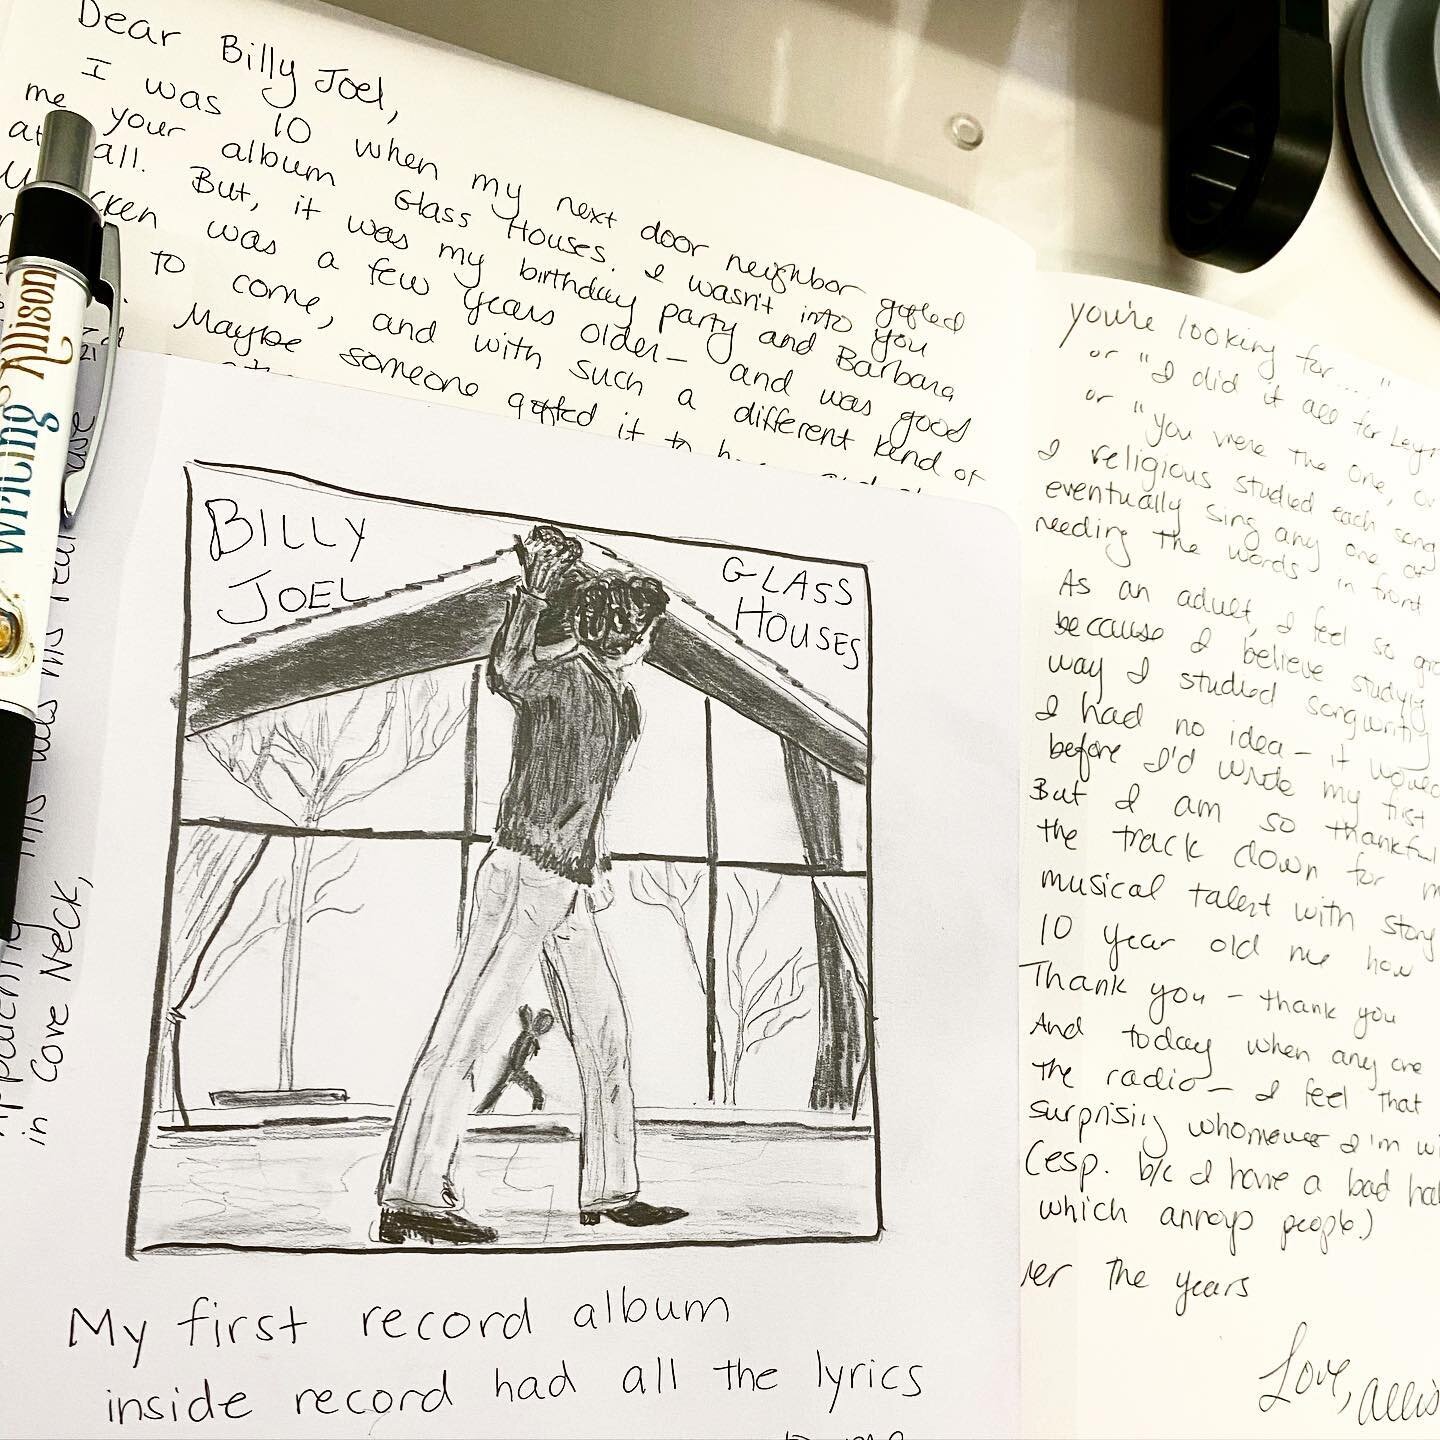 Dear Billy Joel,
I was 10 when my next door neighbor gifted
me your album Glass Houses. I wasn't into you
at all. But, it was my birthday party and Barbara
was a few years older— and was good
to come, and with such a different kind of
Maybe someone gifted it to
BILLY
JOEL
GLASS
HOUSES
My first record album
inside record had all the lyrics
to me
writing Allison
21
in Cove Neck,
you're looking for...."
or "I did it all for
or "you were the one,
I religious studied each song
eventually sing any one of
needing the words in front
As an adult, I feel so
because I believe studying
way I studied songwriting
I had no idea— it would
before I'd wrote my first
But I am so thankful
the track down for
musical talent with story
10 year old me how
Thank you - thank you
And today when any one
the radio— I feel that
surprising whomever I'm
(esp. b/c I have a bad
which annoys people.)
the years
Love,